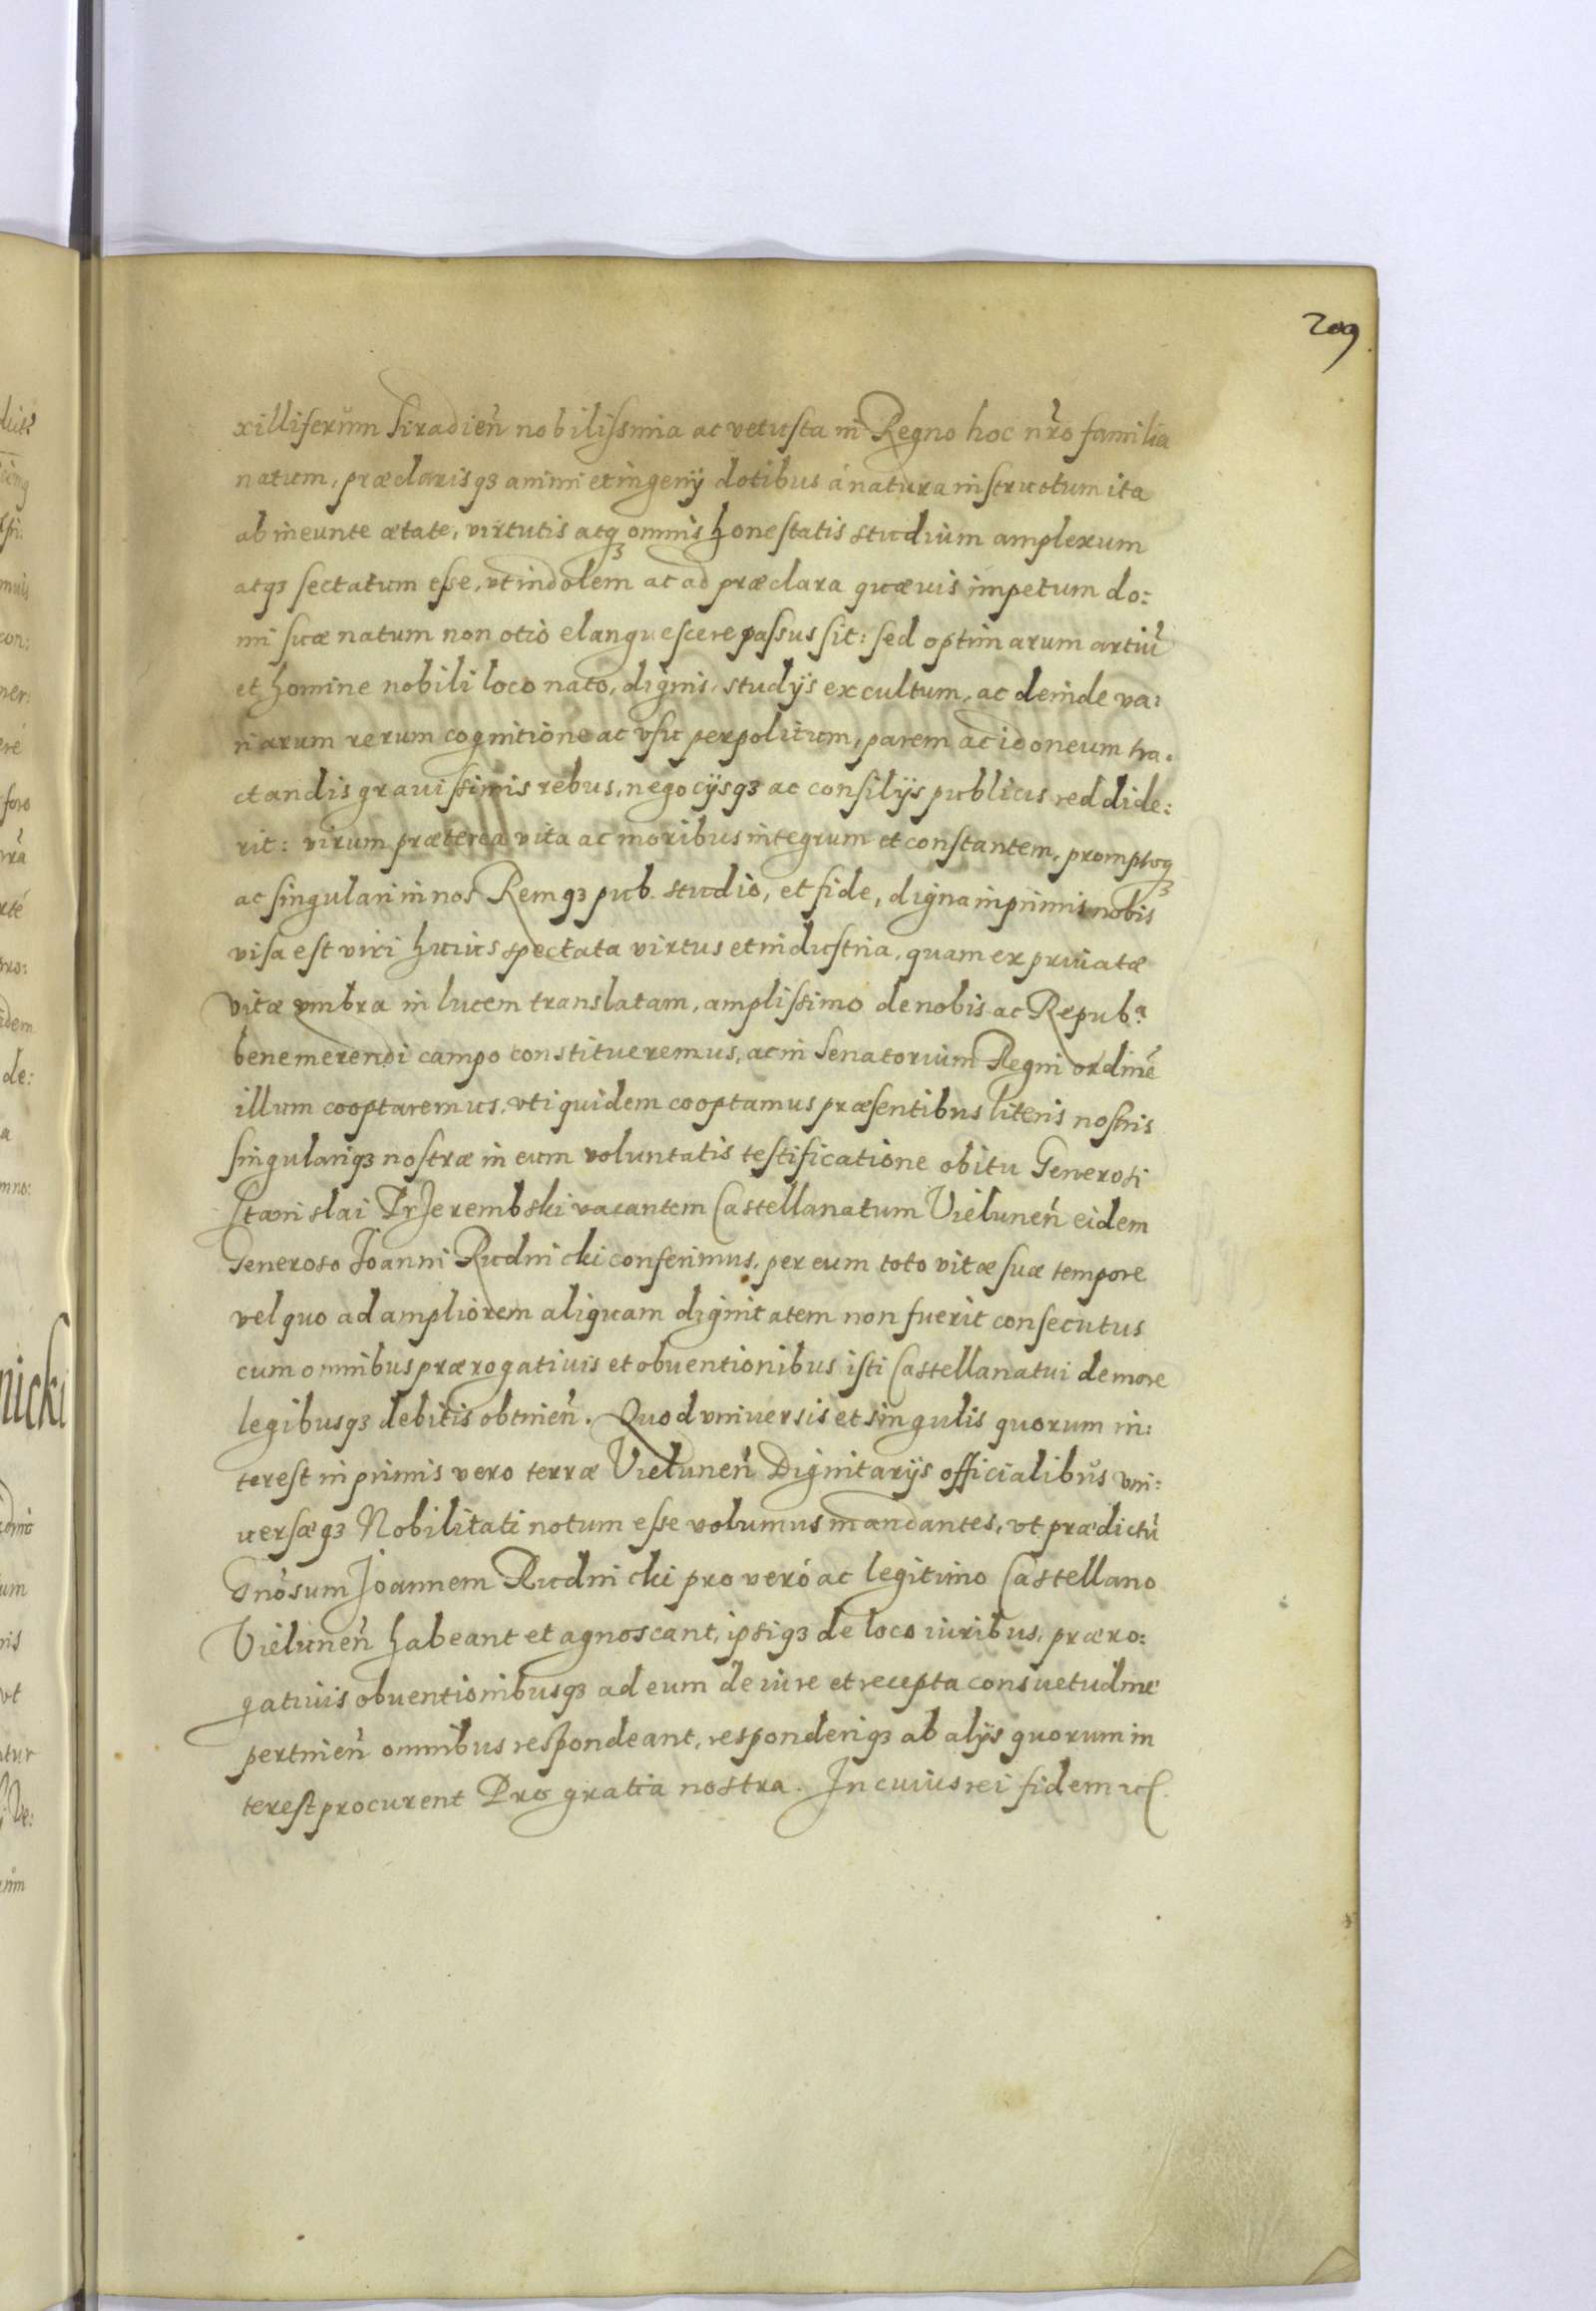 209
xilliferum Siradien̄ nobilissima ac vetusta in Regno hoc nr̄o familia
natum, præclarisqȝ animi et ingenij dotibus à natura instructum ita
ab ineunte ætate, virtutis atqȝ omnis honestatis studium amplexum
atqȝ sectatum esse, vt indolem ac ad præclara quæuis impetum do:
mi suæ natum non otio elanguescere passus sit: sed optimarum artiū
et homine nobili loco nato, dignis, studijs excultum, ac deinde va:
riarum rerum cognitione ac vsu perpolitum, parem ac idoneum tra:
ctandis grauissimis rebus, negocijsqȝ ac consilijs publicis reddide:
rit: virum præterea vita ac moribus integrum et constantem, promptoqȝ
ac singulari in nos Remqȝ pub. studio, et fide, digna inprimis nobis
visa est viri huius spectata virtus et industria, quam ex priuatæ
vitæ vmbra in lucem translatam, amplissimo de nobis ac Repub.ᵃ
benemerendi campo constitueremus, ac in Senatorium Regni ordinē
illum cooptaremus, vti quidem cooptamus præsentibus literis nostris
singulariqȝ nostræ in eum voluntatis testificatione obitu Generosi
Stanislai Przerembski vacantem Castellanatum Vielunen̄ eidem
Generoso Joanni Rudnicki conferimus, per eum toto vitæ suæ tempore
vel quo ad ampliorem aliquam dignitatem non fuerit consecutus
cum omnibus prærogatiuis et obuentionibus isti Castellanatui de more
legibusqȝ debitis obtinen̄. Quod vniuersis et singulis quorum in:
terest in primis vero terræ Vielunen̄ Dignitarijs officialibus vni:
uersæqȝ Nobilitati notum esse volumus mandantes, vt prædictū
Gnōsum Joannem Rudnicki pro veró ac legitimo Castellano
Vielunen̄ habeant et agnoscant, ipsiqȝ de loco iuribus, præro:
gatiuis obuentionibusqȝ ad eum de iure et recepta consuetudine
pertinen̄ omnibus respondeant, responderiqȝ ab alijs quorum in
terest procurent Pro gratia nostra. In cuius rei fidem etc.